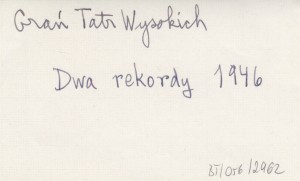 Grań Tatr Wysokich
Dwa rekordy 1946
BT/Ost/2962